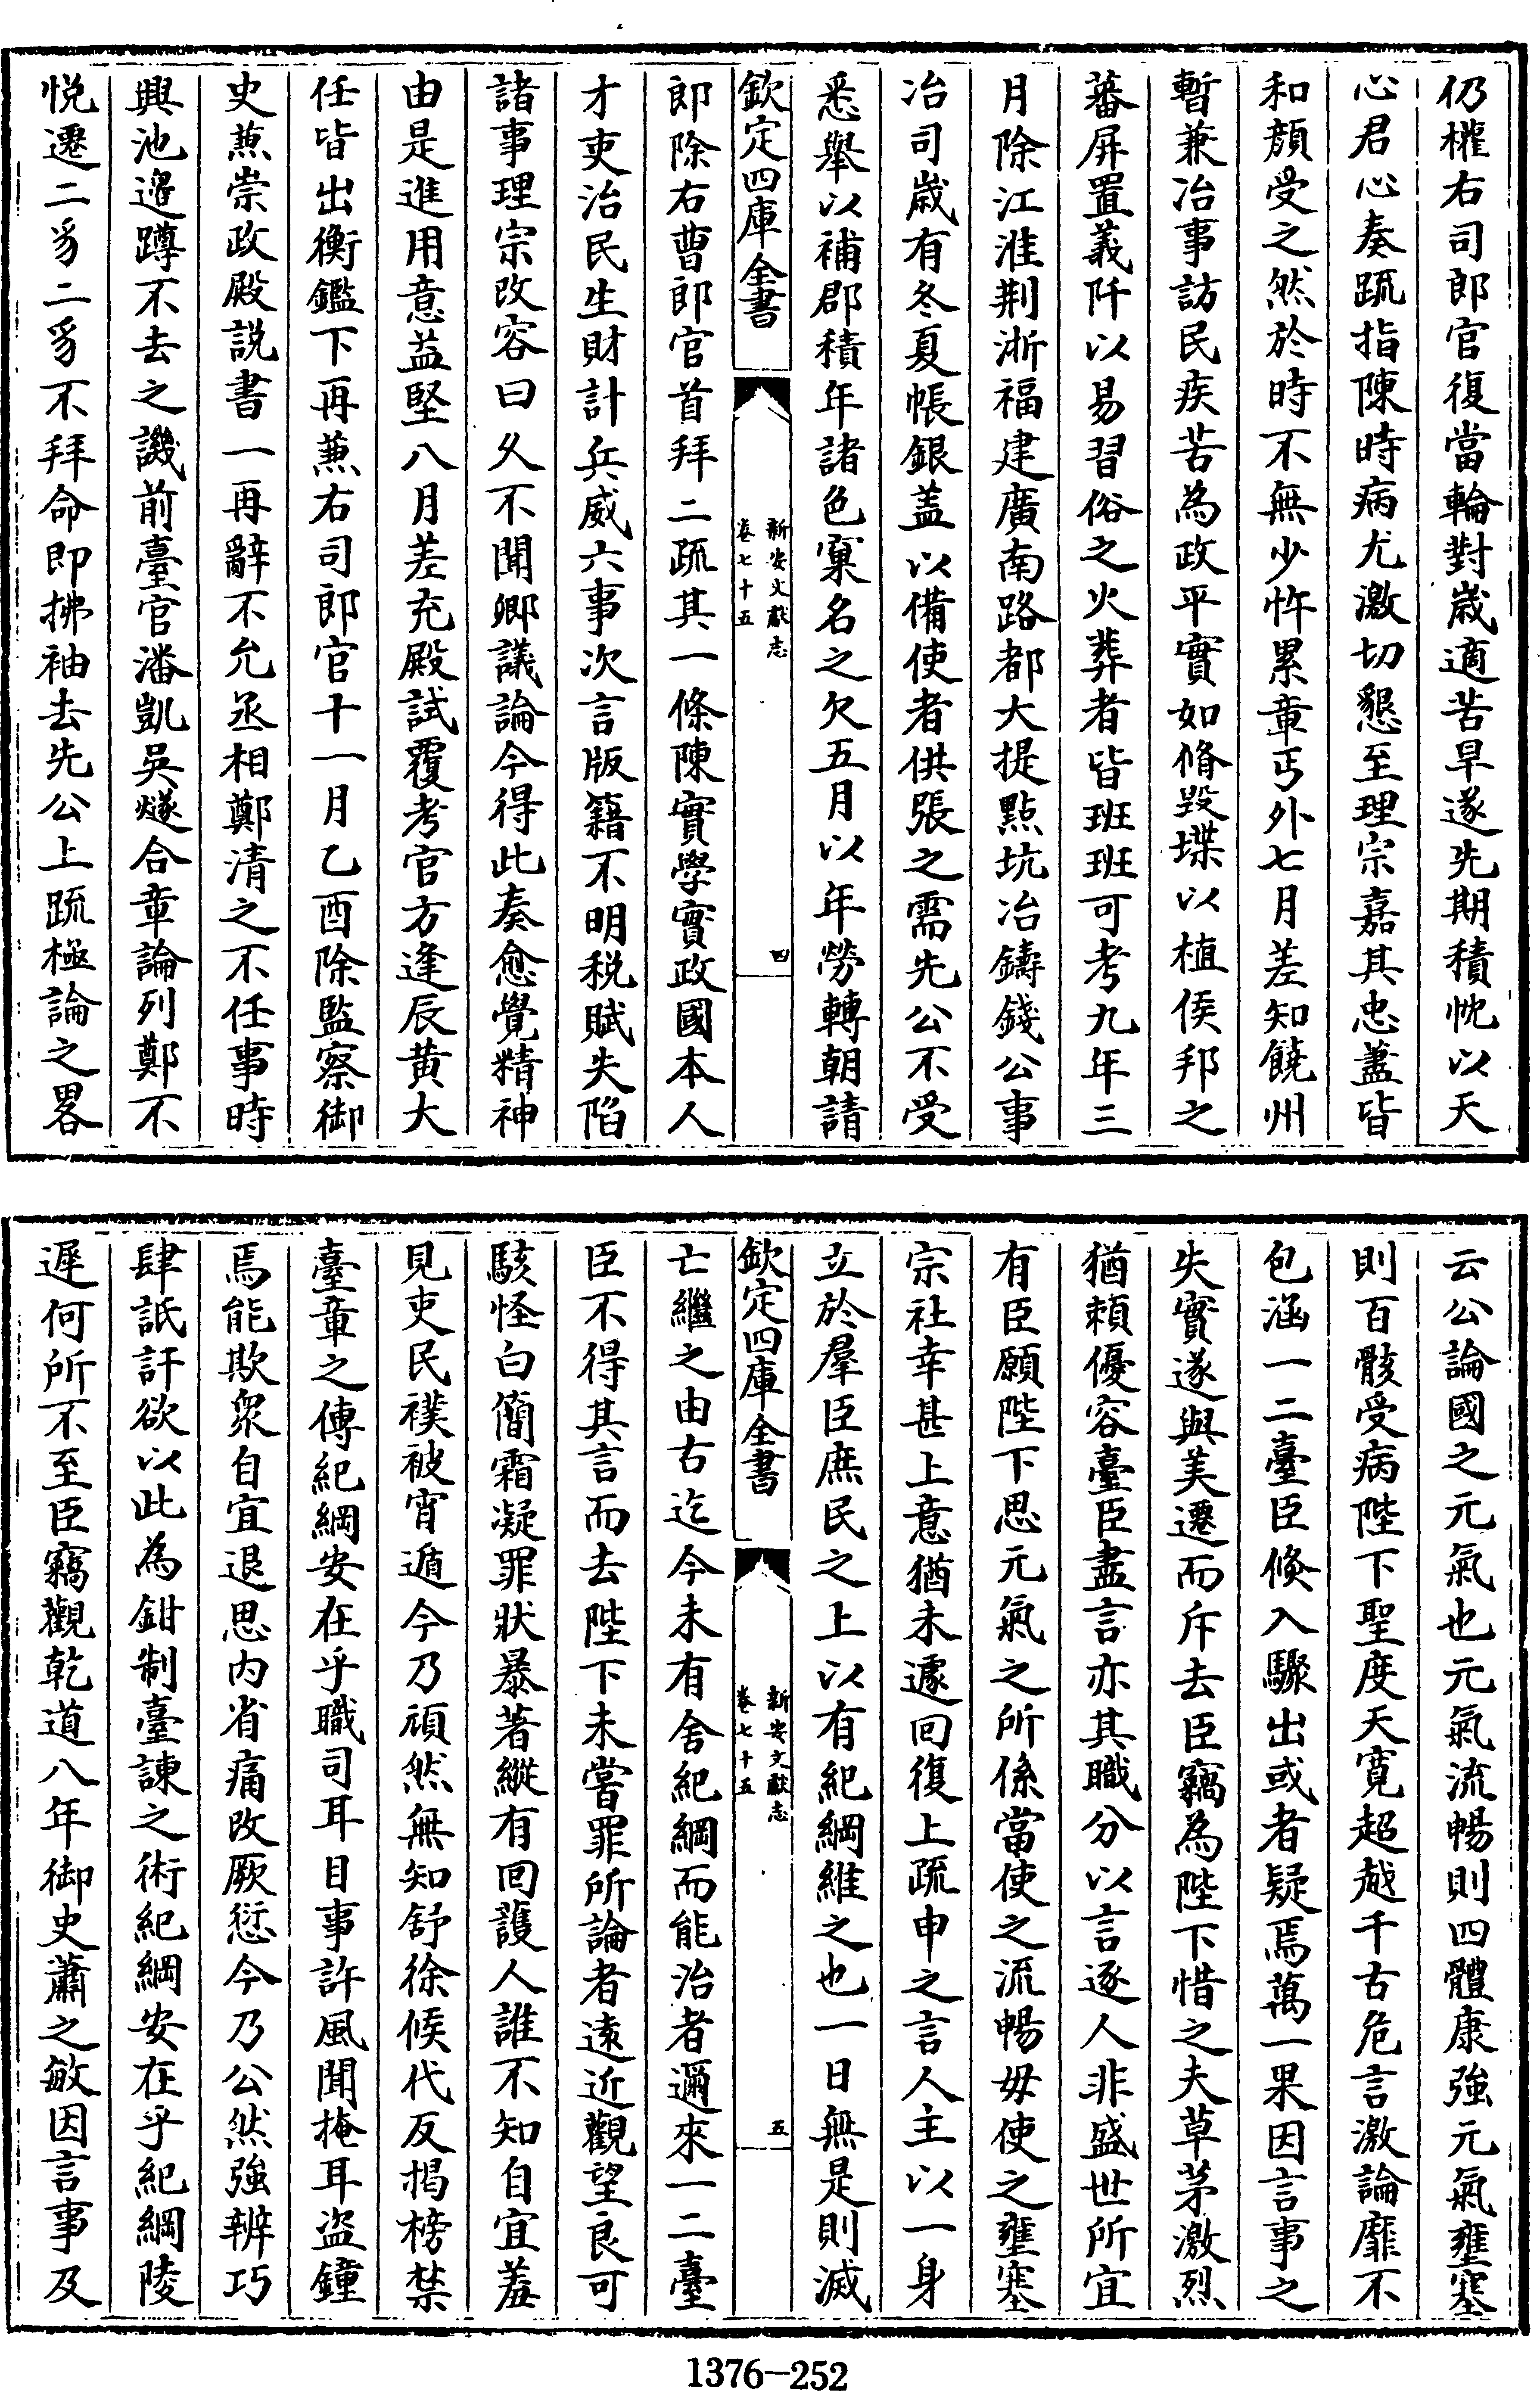 仍權右司郎官復當輪對嵗適苦旱遂先期積忱以天
心君心奏疏指陳時病尤激切懇至理宗嘉其忠藎皆
和顔受之然於時不無少忤累章丐外七月差知饒州
暫兼冶事訪民疾苦為政平實如脩毁堞以植侯邦之
蕃屏置義阡以易習俗之火葬者皆班班可考九年三
月除江淮荆浙福建廣南路都大提點坑冶鑄錢公事
冶司嵗有冬夏帳銀盖以備使者供張之需先公不受
悉舉以補郡積年諸色窠名之欠五月以年勞轉朝請
欽定四庫全書
新安文獻志
卷七十五
四
郎除右曹郎官首拜二疏其一條陳實學實政國本人
才吏治民生財計兵威六事次言版籍不明税賦失陷
諸事理宗改容曰乆不聞卿議論今得此奏愈覺精神
由是進用意益堅八月差充殿試覆考官方逢辰黄大
任皆出衡鑑下再兼右司郎官十一月乙酉除監察御
史兼崇政殿説書一再辭不允丞相鄭清之不任事時
興池邉蹲不去之譏前臺官潘凱吳燧合章論列鄭不
悦遷二豸二豸不拜命即拂袖去先公上疏極論之畧
云公論國之元氣也元氣流暢則四體康強元氣壅塞
則百骸受病陛下聖度天寛超越千古危言激論靡不
包涵一二臺臣倐入驟出或者疑焉萬一果因言事之
失實遂與美遷而斥去臣竊為陛下惜之夫草茅激烈
猶頼優容臺臣盡言亦其職分以言逐人非盛世所宜
有臣願陛下思元氣之所係當使之流暢毋使之壅塞
宗社幸甚上意猶未遽回復上疏申之言人主以一身
立於羣臣庶民之上以有紀綱維之也一日無是則滅
欽定四庫全書
新安文獻志
卷七十五
五
亡繼之由古迄今未有舍紀綱而能治者邇來一二臺
臣不得其言而去陛下未嘗罪所論者逺近觀望良可
駭怪白簡霜凝罪狀暴著縱有回護人誰不知自宜羞
見吏民襆被宵遁今乃頑然無知舒徐候代反掲榜禁
臺章之傳紀綱安在乎職司耳目事許風聞掩耳盗鐘
焉能欺衆自宜退思内省痛改厥愆今乃公然強辨巧
肆詆訐欲以此為鉗制臺諫之術紀綱安在乎紀綱陵
遲何所不至臣竊觀乾道八年御史蕭之敏因言事及
1376-252